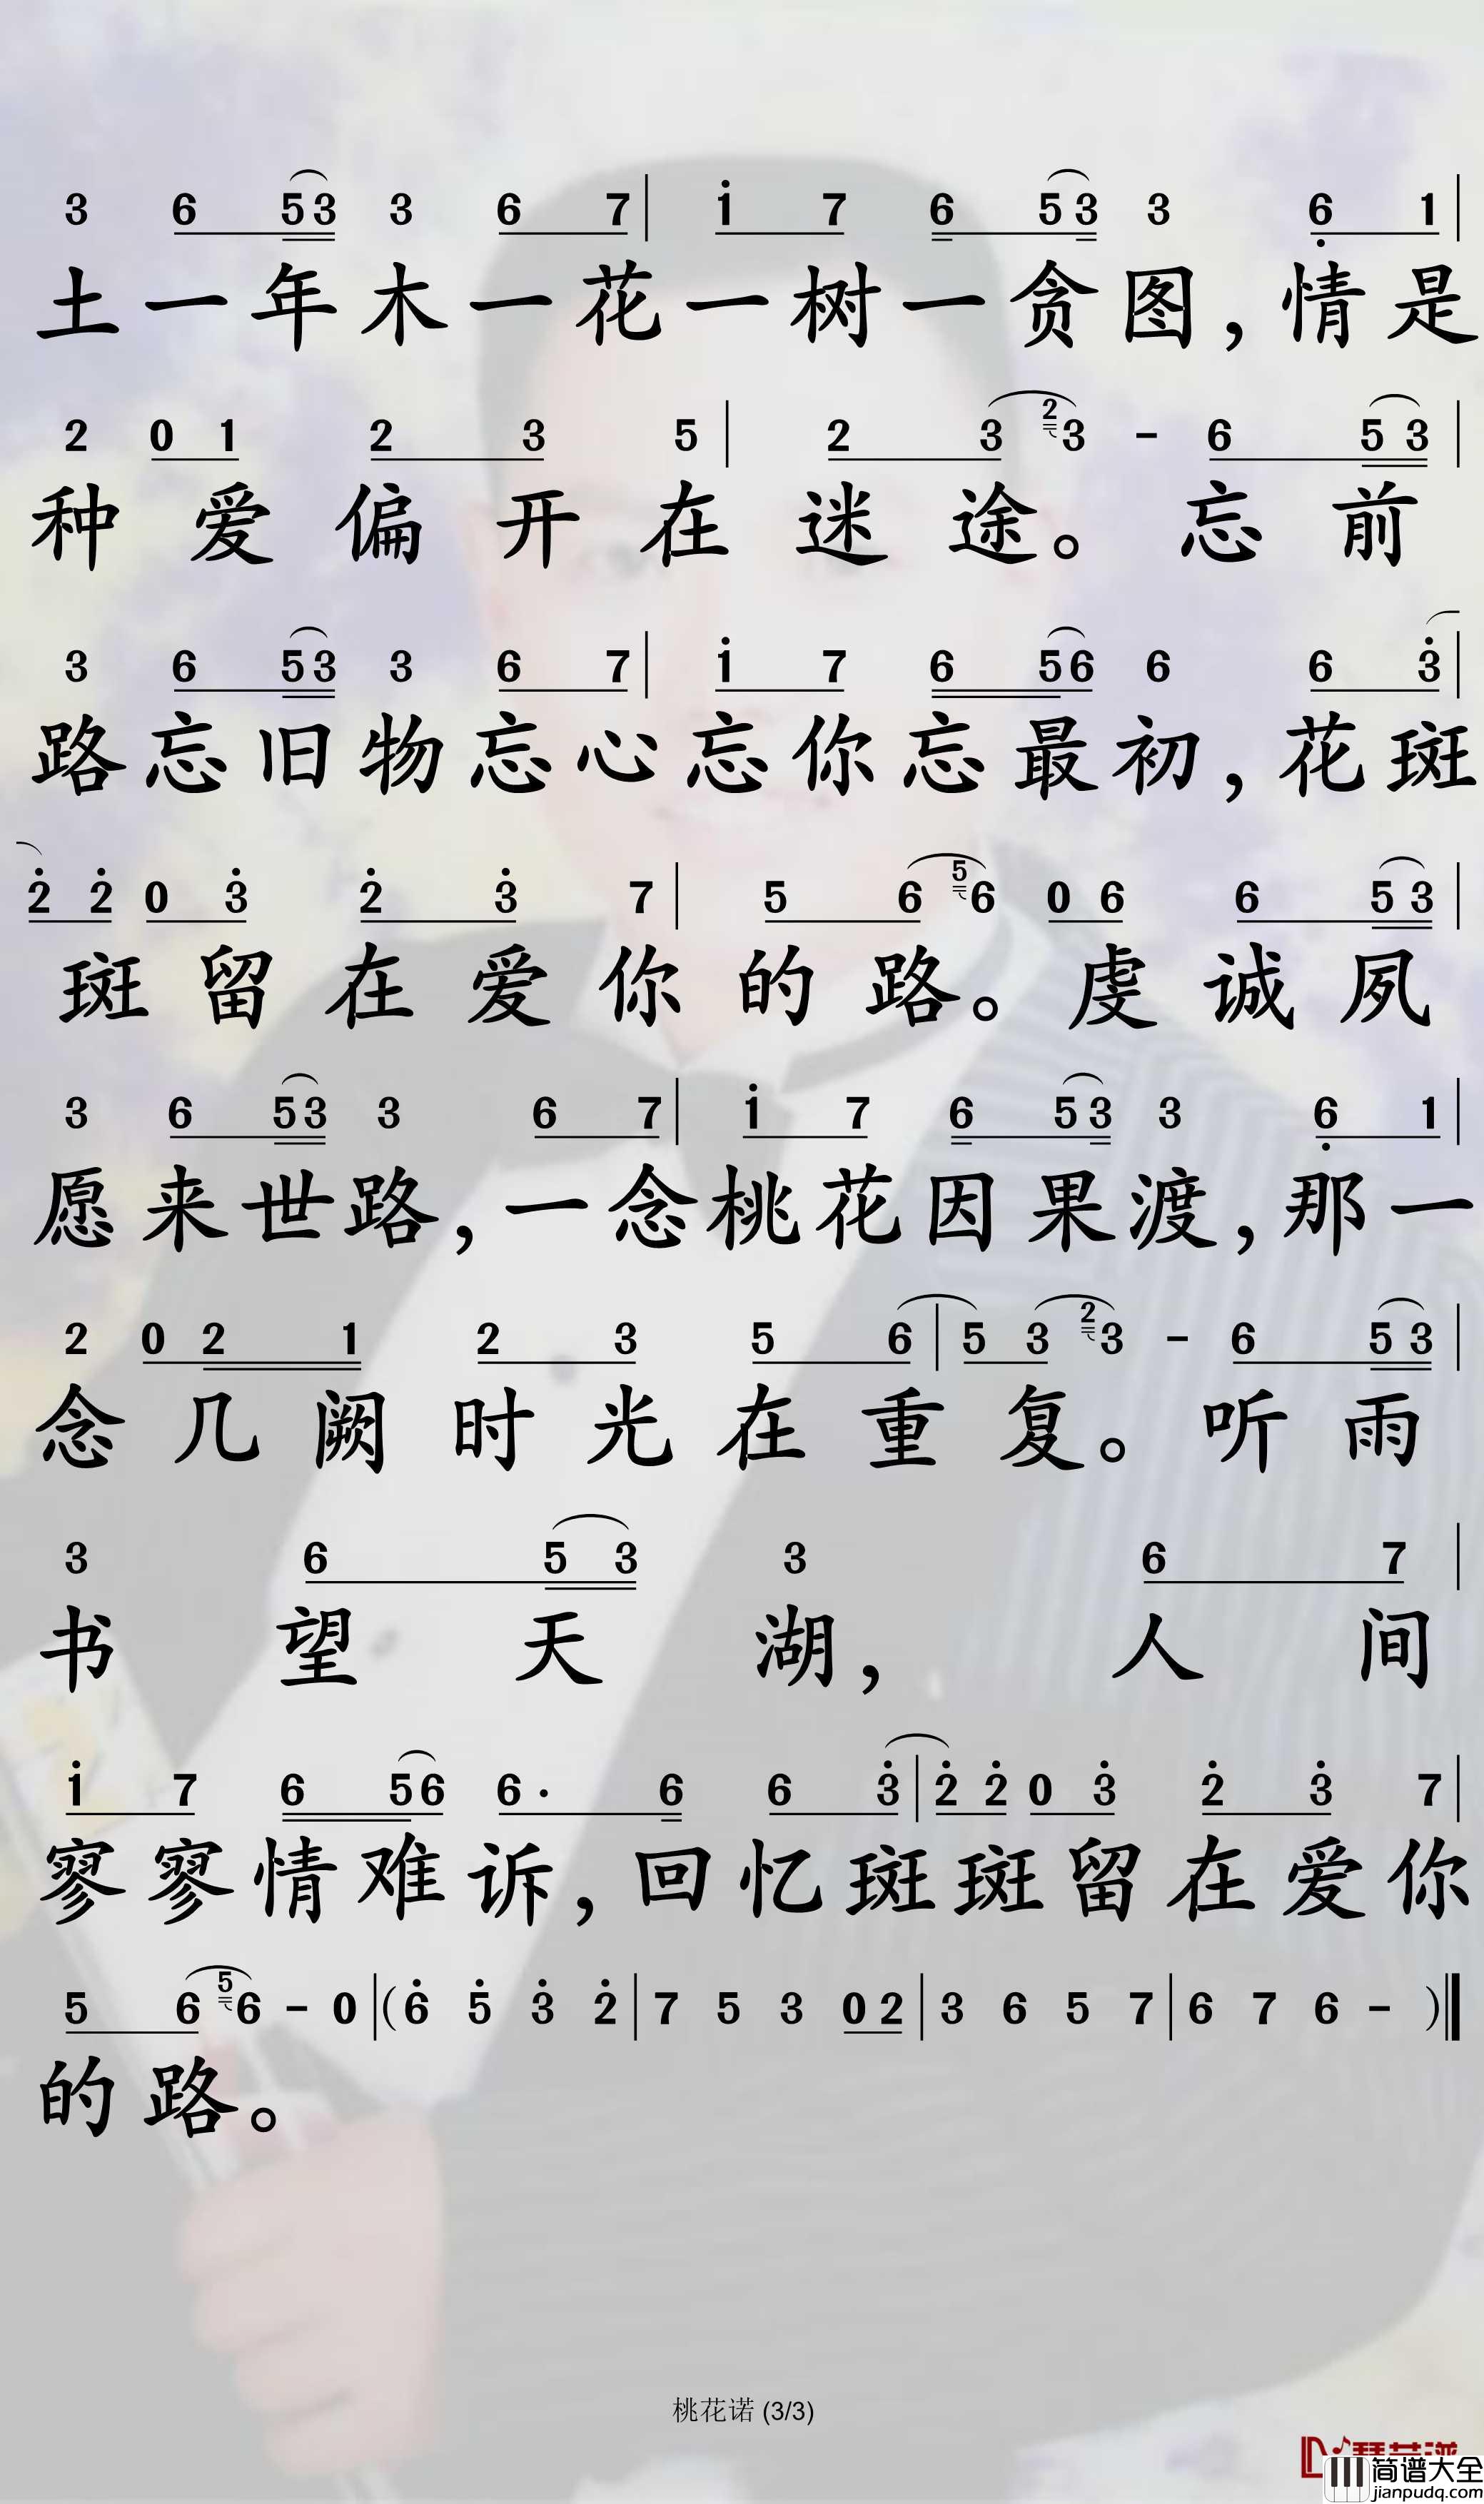 3 6 5 3 3 6 7 | 1 7 6 5 3 3 6 1 |
土一年木一花一树一贪图，情是
2 0 1 2 3 5 | 2 3 2 3 - 6 5 3 |
种爱偏开在迷途。忘前
3 6 5 3 3 6 7 | 1 7 6 5 6 6 6 3 |
路忘旧物忘心忘你忘最初，花斑
2 2 0 3 2 3 7 | 5 6 5 6 0 6 6 5 3 |
斑留在爱你的路。虔诚夙
3 6 5 3 3 6 7 | 1 7 6 5 3 3 6 1 |
愿来世路，一念桃花因果渡，那一
2 0 2 1 2 3 5 6 | 5 3 2 3 - 6 5 3 |
念几阙时光在重复。听雨
3 6 5 3 3 6 7 |
书望天湖，人间
1 7 6 5 6 6 · 6 6 3 | 2 2 0 3 2 3 7 |
寥寥情难诉，回忆斑斑留在爱你
5 6 5 6 - 0 | ( 6 5 3 2 | 7 5 3 0 2 | 3 6 5 7 | 6 7 6 - ) ‖
的路。
桃花诺 (3/3)
简谱大全
jianpudq.com